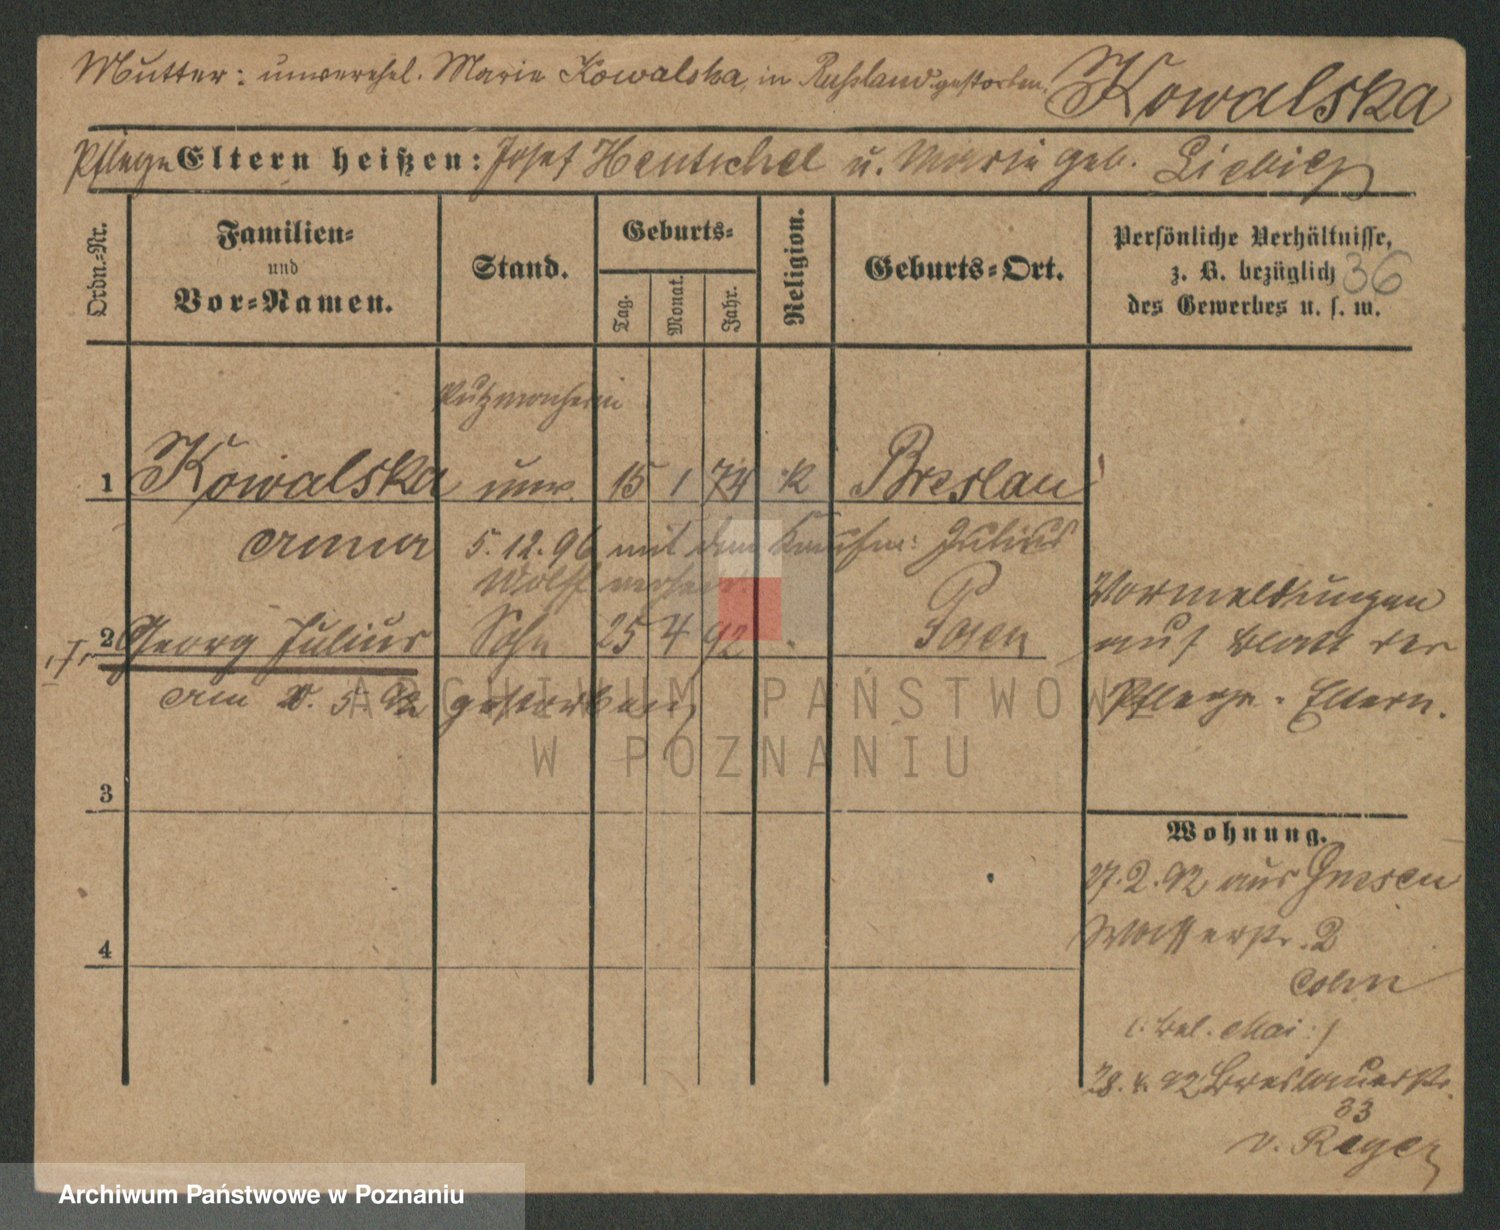 Mutter: unverehel. Marie Kowalska, in Russland gestorben. Kowalska
Pflege Eltern heißen: Josef Hentschel u. Marie geb. Liebig
Ordn.-Nr.
Familien-
und
Vor-Namen.
Stand.
Geburts-
Tag.
Monat.
Jahr.
Religion.
Geburts-Ort.
Persönliche Verhältnisse,
z. B. bezüglich 36
des Gewerbes u. s. w.
Putzmacherin
1 Kowalska unv. 15 1 74 k Breslau
Anna 5.12.96 mit dem Kaufm: Julius
Wolff verheir.
2 Georg Julius Sohn 25 4 92 Posen
am 5. 92 gestorben
Vormeldungen
auf Blatt der
Pflege-Eltern.
3
4
Wohnung.
27.2.92 aus Gnesen
Wasserstr. 2
Cohn
28. 4. 92 Breslauerstr.
33
v. Reyer
ARCHIWUM PAŃSTWOWE
W POZNANIU
Archiwum Państwowe w Poznaniu